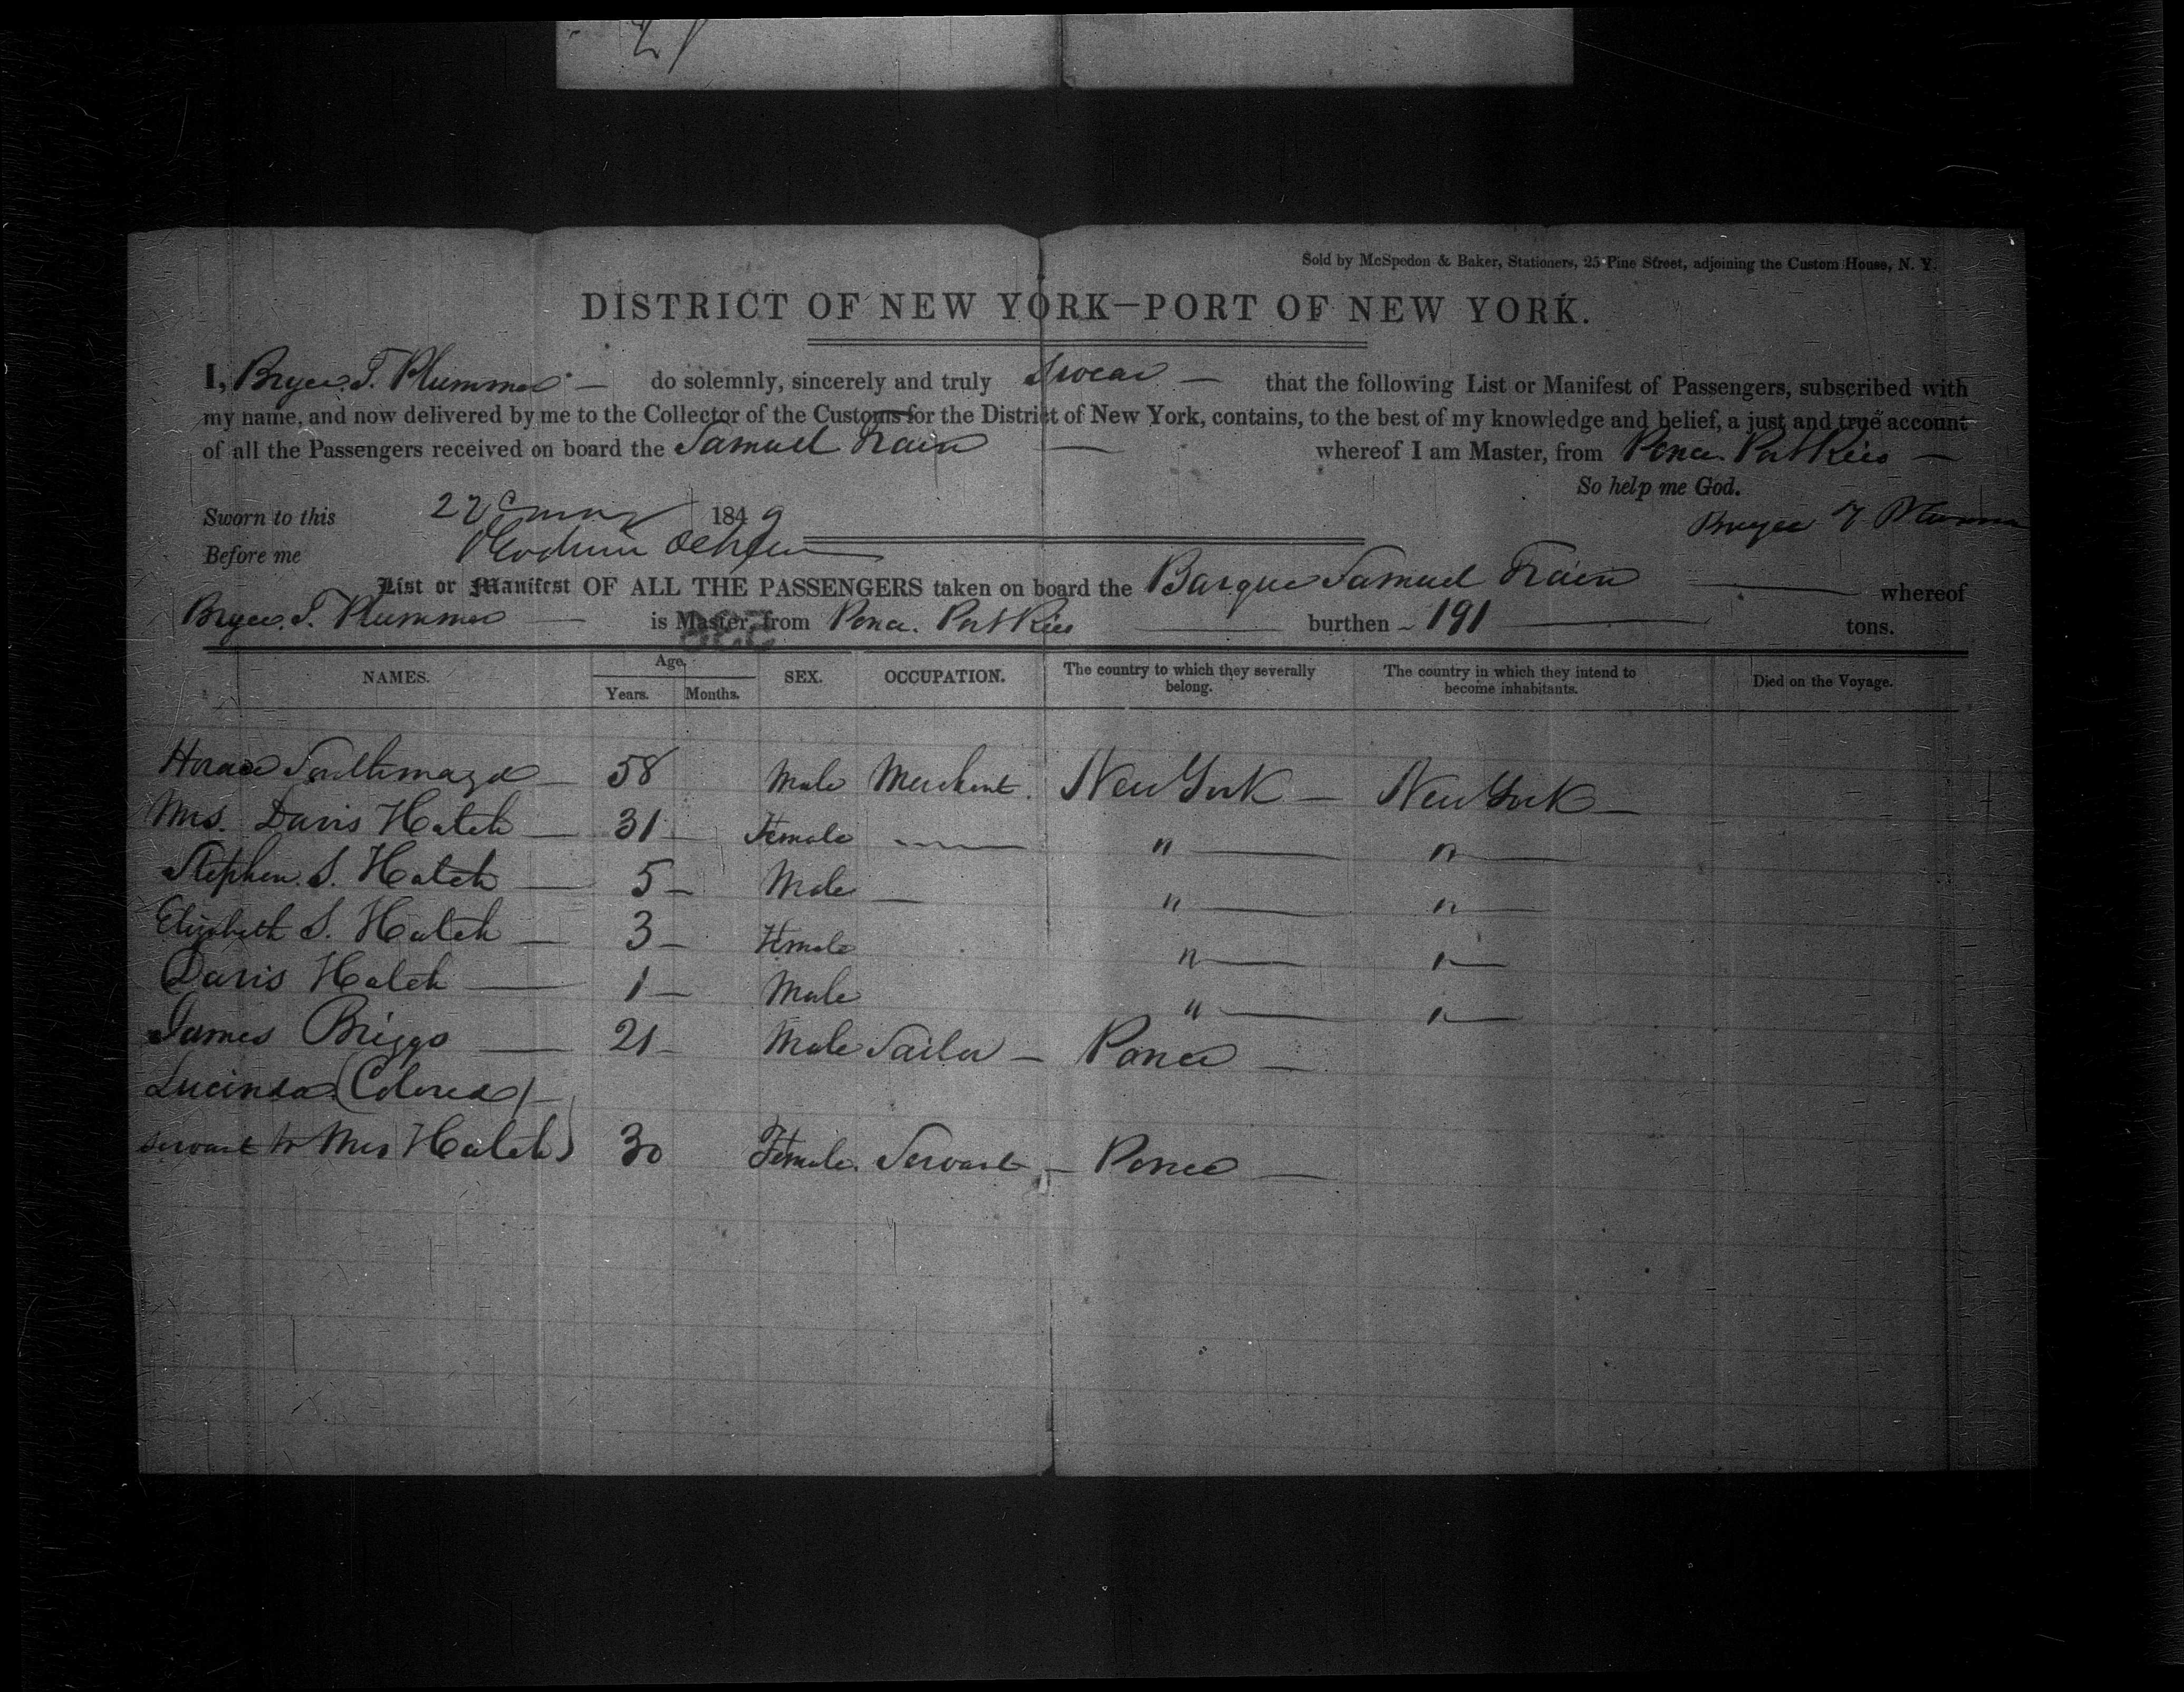 Sold by McSpedon & Baker, Stationers, 25 Pine Street, adjoining the Custom House, N. Y.
DISTRICT OF NEW YORK—PORT OF NEW YORK.
I, Bryce. T. Plummer — do solemnly, sincerely and truly Swear — that the following List or Manifest of Passengers, subscribed with
my name, and now delivered by me to the Collector of the Customs for the District of New York, contains, to the best of my knowledge and belief, a just and true account
of all the Passengers received on board the Samuel Train — whereof I am Master, from Ponce. Port Rico —
So help me God.
Sworn to this 22d may 1849 Bryce T Plummer
Before me
List or Manifest OF ALL THE PASSENGERS taken on board the Barque Samuel Train — whereof
Bryce. T. Plummer — is Master, from Ponce. Port Rico — burthen 191 — tons.
NAMES. Age. SEX. OCCUPATION. The country to which they severally belong. The country in which they intend to become inhabitants. Died on the Voyage.
Years. Months.
Horace Southmayd — 58 Male Merchant. New York — New York —
Mrs. Davis Hatch — 31 — Female — " — " —
Stephen. S. Hatch — 5 — Male — " — " —
Elizabeth S. Hatch — 3 — Female " — " —
Davis Hatch — 1 — Male " — " —
James Briggs — 21 — Male Sailor — Ponce —
Lucinda (Colored) —
servant to Mrs Hatch) 30 Female. Servant — Ponce —